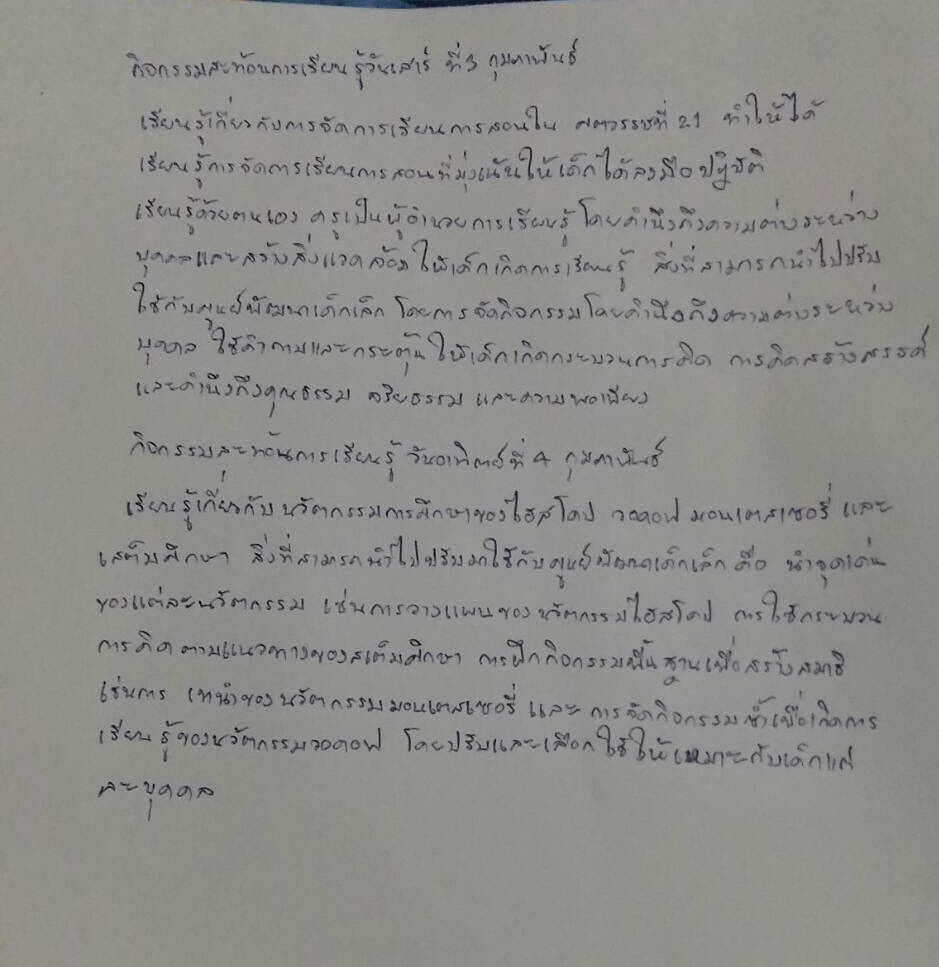 กิจกรรมสะท้อนการเรียนรู้วันเสาร์ ที่ 3 กุมภาพันธ์
เรียนรู้เกี่ยวกับการจัดการเรียนการสอนใน ศตวรรษที่ 21 ทำให้ได้
เรียนรู้การจัดการเรียนการสอนที่มุ่งเน้นให้เด็กได้ลงมือปฏิบัติ
เรียนรู้ด้วยตนเอง ครูเป็นผู้อำนวยการเรียนรู้ โดยคำนึงถึงความต่างระหว่าง
บุคคลและสร้างสิ่งแวดล้อมให้เด็กเกิดการเรียนรู้ สิ่งที่สามารถนำไปปรับ
ใช้กับศูนย์พัฒนาเด็กเล็ก โดยการจัดกิจกรรมโดยคำนึงถึงความต่างระหว่าง
บุคคล ใช้คำถามและกระตุ้นให้เด็กเกิดกระบวนการคิด การคิดสร้างสรรค์
และคำนึงถึงคุณธรรม จริยธรรม และความพอเพียง
กิจกรรมสะท้อนการเรียนรู้ วันอาทิตย์ที่ 4 กุมภาพันธ์
เรียนรู้เกี่ยวกับนวัตกรรมการศึกษาของไฮสโคป วอดอฟ มอนเตสเซอรี่ และ
เสต็มศึกษา สิ่งที่สามารถนำไปปรับมาใช้กับศูนย์พัฒนาเด็กเล็ก คือ นำจุดเด่น
ของแต่ละนวัตกรรม เช่นการวางแผนของนวัตกรรมไฮสโคป การใช้กระบวน
การคิดตามแนวทางของสเต็มศึกษา การฝึกกิจกรรมพื้นฐานเพื่อสร้างสมาธิ
เช่นการ เทน้ำของนวัตกรรมมอนเตสเซอรี่ และ การจัดกิจกรรมซ้ำเพื่อเกิดการ
เรียนรู้ของนวัตกรรมวอดอฟ โดยปรับและเลือกใช้ให้เหมาะกับเด็กแต่
ละบุคคล